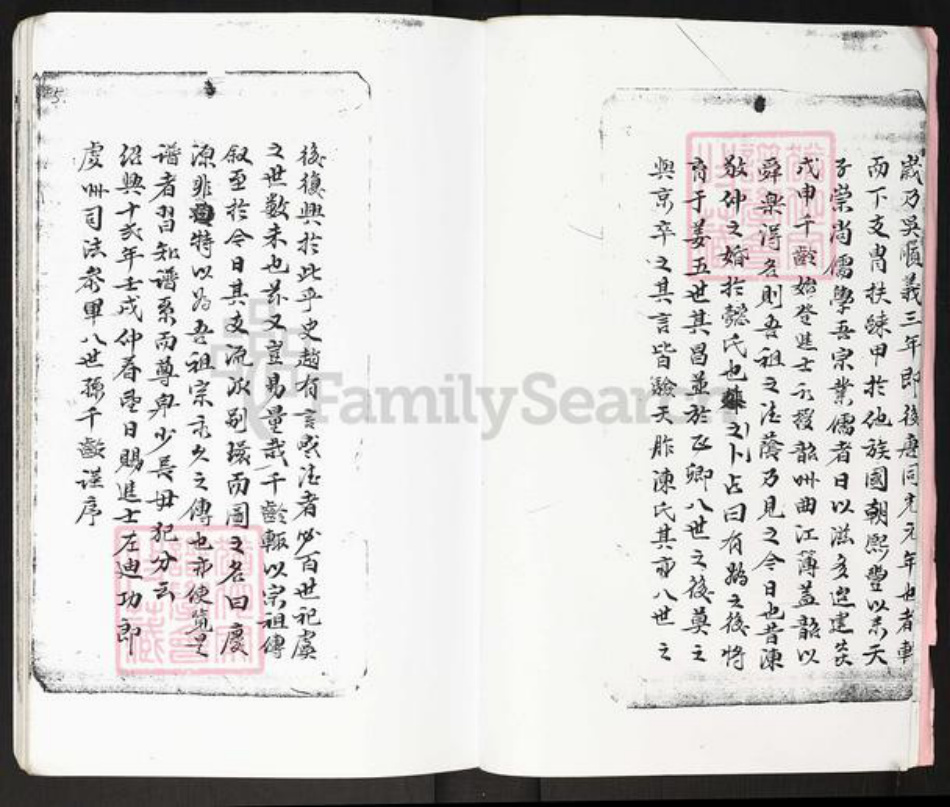 歲乃吳順義三年即後唐同光元年也者軒
而下支胄扶疎甲於他族國朝熙豐以來天
子崇尚儒學吾宗業儒者日以滋多迨建炎
戊申千齡始登進士第授韶州曲江簿蓋韶以
舜樂得名則吾祖之法蔭乃見之今日也昔陳
敬仲之婚於懿氏也 之卜占曰有媯之後將
育于姜五世其昌並於正卿八世之後莫之
與京卒之其言皆驗天胙陳氏其亦八世之
後復興於此乎史趙有言盛德者必百世祀虞
之世數未也 又豈易量哉千齡輒以宗祖傳
叙至於今日其支流派別環而圖之名曰慶
源非 特以為吾祖宗永久之傳也亦使覽是
譜者習知譜系而尊卑少長毋犯分云
紹興十弍年壬戌仲春望日賜進士左迪功郎
虔州司法參軍八世孫千齡謹序
FamilySearch